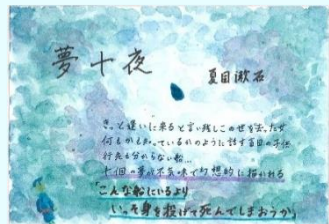 夢十夜
夏目漱石
きっと逢いに来ると言い残しこの世を去った女
何もかも知っているかのように話す盲目の子供
行先も分からない船…
十個の夢が不気味で幻想的に描かれる
「こんな船にいるより
いっそ身を投げて死んでしまおうか」